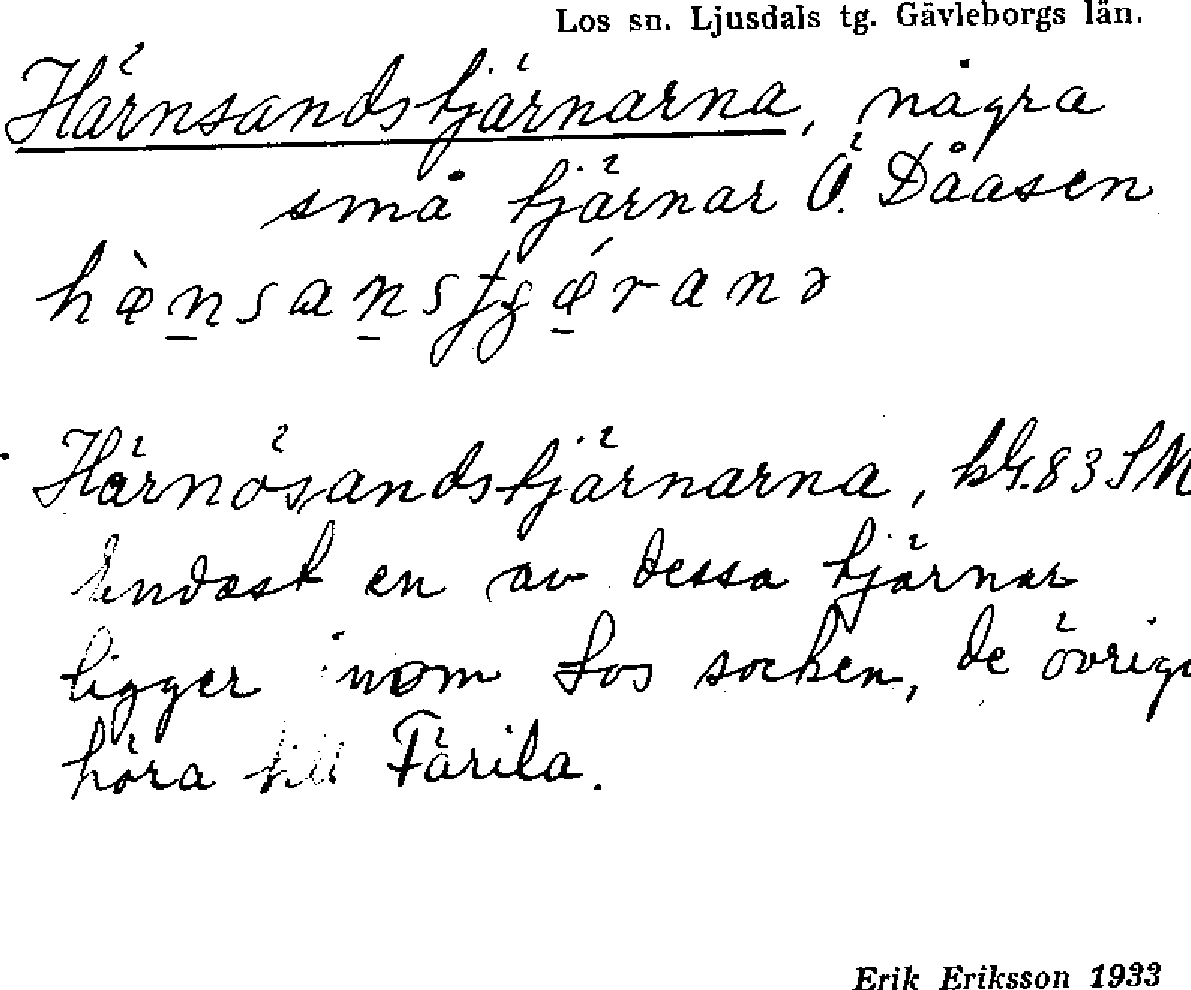 Los sn. Ljusdals tg. Gävleborgs län.
Härnsandstjärnarna, några
små tjärnar Ö. Dåasen
Härnösandstjärnarna, bl. 83 SM
Endast en av dessa tjärnar
ligger inom Los socken, de övriga
höra till Färila.
Erik Eriksson 1933